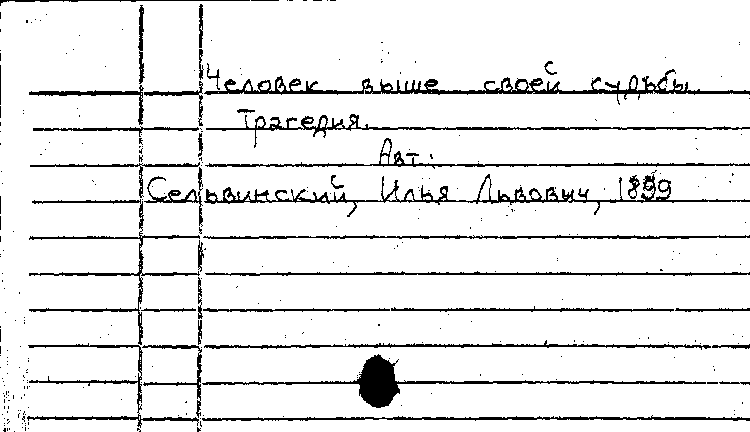 Человек выше своей судьбы.
Трагедия.
Авт.:
Сельвинский, Илья Львович, 1899